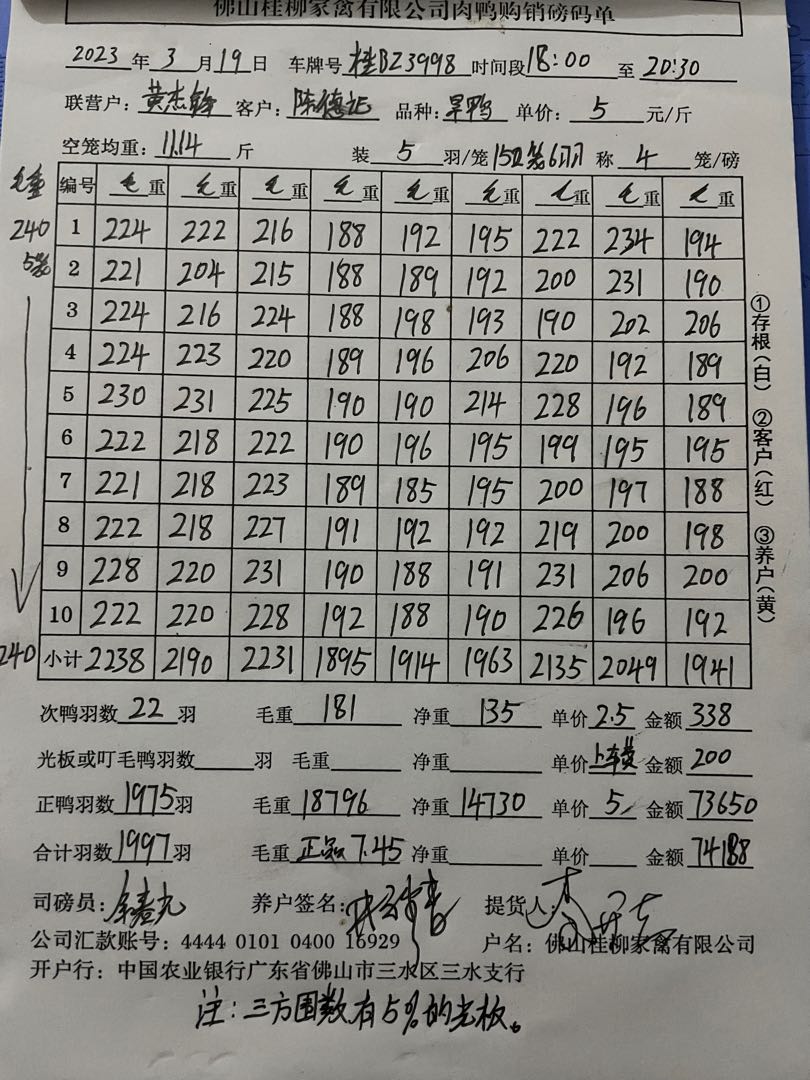 佛山桂柳家禽有限公司肉鸭购销磅码单
2023 年 3 月 19 日 车牌号 桂BZ3998 时间段 18:00 至 20:30
联营户: 黄杰锋 客户: 陈德 品种: 旱鸭 单价: 5 元/斤
空笼均重: 11.14 斤 装 5 羽/笼 15 6羽 称 4 笼/磅
编号 毛重 毛重 毛重 毛重 毛重 毛重 毛重 毛重 毛重
毛重
240
1 224 222 216 188 192 195 222 234 194
2 221 204 215 188 189 192 200 231 190
3 224 216 224 188 198 193 190 202 206
4 224 223 220 189 196 206 220 192 189
5 230 231 225 190 190 214 228 196 189
6 222 218 222 190 196 195 199 195 195
7 221 218 223 189 185 195 200 197 188
8 222 218 227 191 192 192 219 200 198
9 228 220 231 190 188 191 231 206 200
10 222 220 228 192 188 190 226 196 192
240
小计 2238 2190 2231 1895 1914 1963 2135 2049 1941
次鸭羽数 22 羽 毛重 181 净重 135 单价 2.5 金额 338
光板或叮毛鸭羽数 羽 毛重 净重 单价 上车费 金额 200
正鸭羽数 1975 羽 毛重 18796 净重 14730 单价 5 金额 73650
合计羽数 1997 羽 毛重 正品 7.45 净重 单价 金额 74188
司磅员: 养户签名: 提货人:
公司汇款账号: 4444 0101 0400 16929 户名: 佛山桂柳家禽有限公司
开户行: 中国农业银行广东省佛山市三水区三水支行
注: 三方围数有5%的光板。
①存根(白) ②客户(红) ③养户(黄)